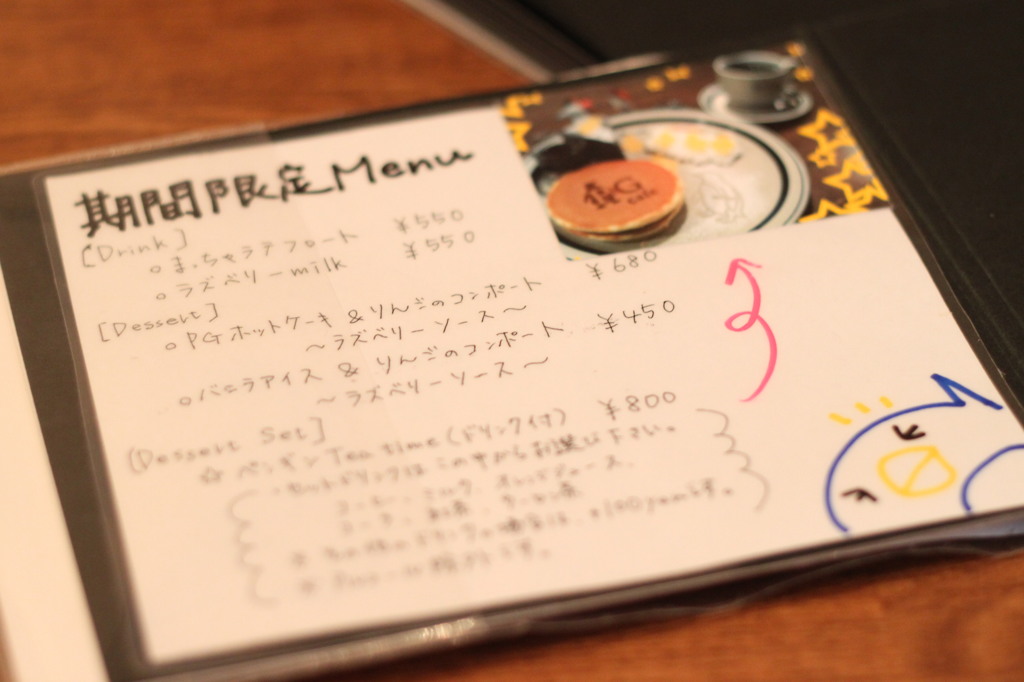 期間限定Menu
[Drink]
○まっちゃラテフロート ¥550
○ラズベリーmilk ¥550
[Dessert]
○PGホットケーキ&りんごのコンポート ¥680
～ラズベリーソース～
○バニラアイス & りんごのコンポート ¥450
～ラズベリーソース～
[Dessert Set]
☆ペンギンTea time(ドリンク付) ¥800
・セットドリンクはこの中からお選び下さい。
コーヒー、ミルク、オレンジジュース、
コーラ、紅茶、
※その他のドリンクの場合は、+100yenです。